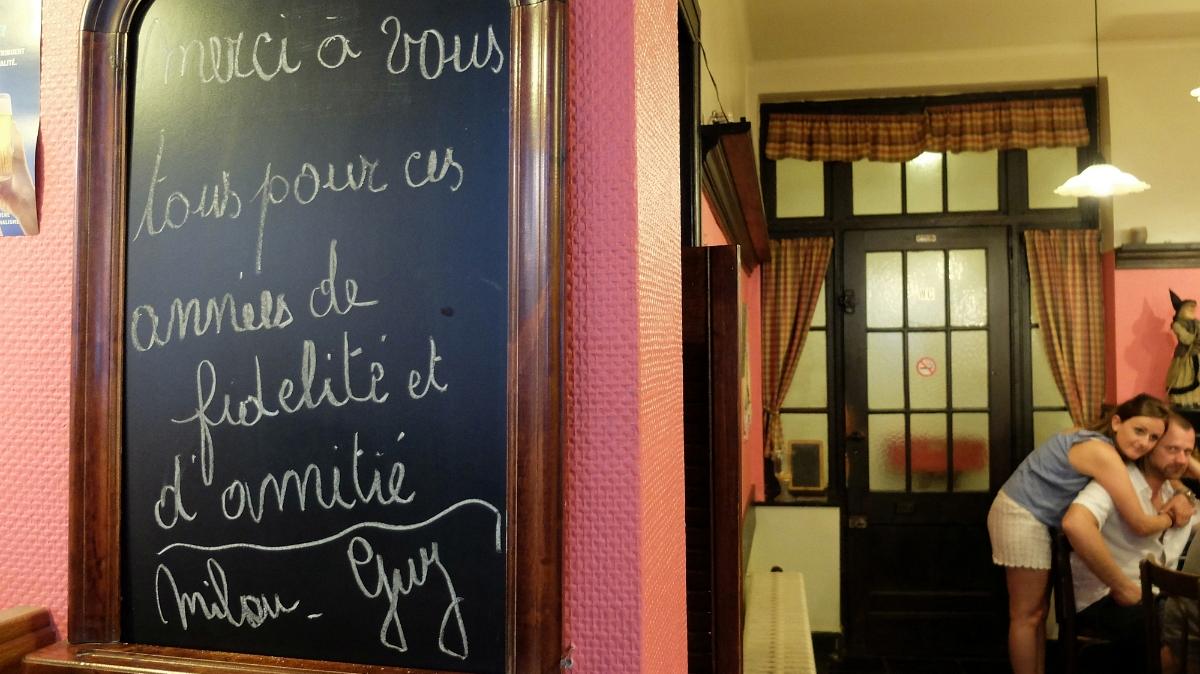 merci à vous
tous pour ces
années de
fidelité et
d'amitié
Milou - Guy
WC